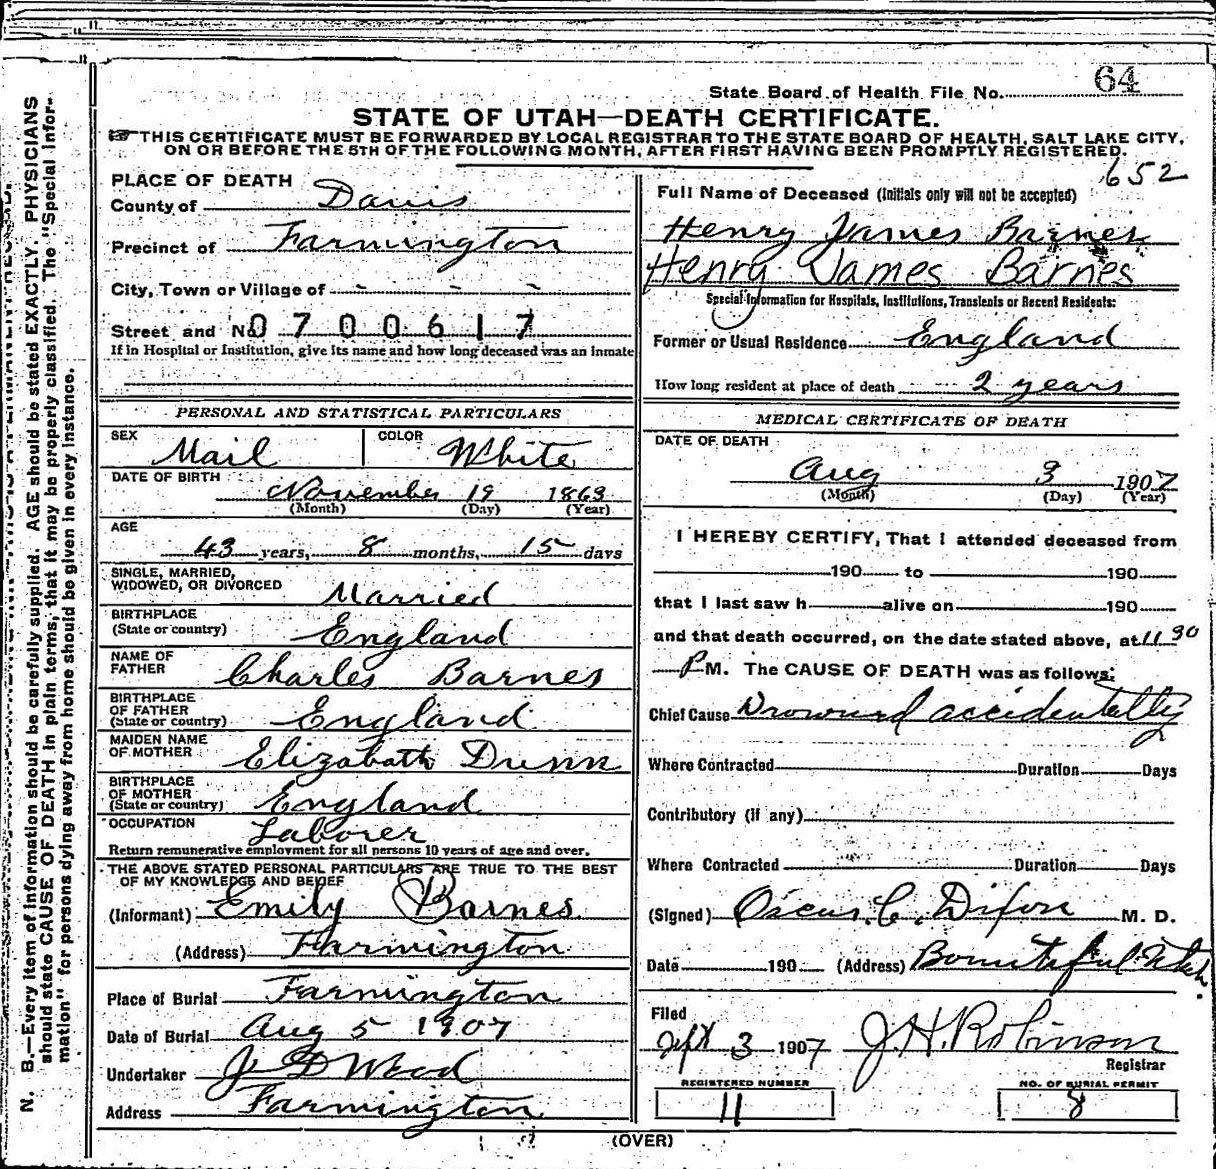 64
State Board of Health File No.
STATE OF UTAH—DEATH CERTIFICATE.
☞THIS CERTIFICATE MUST BE FORWARDED BY LOCAL REGISTRAR TO THE STATE BOARD OF HEALTH, SALT LAKE CITY,
ON OR BEFORE THE 5TH OF THE FOLLOWING MONTH, AFTER FIRST HAVING BEEN PROMPTLY REGISTERED.
652
PLACE OF DEATH
County of Davis
Precinct of Farmington
City, Town or Village of - - -
Street and No. 0700617
If in Hospital or Institution, give its name and how long deceased was an inmate
PERSONAL AND STATISTICAL PARTICULARS
SEX Mail COLOR White
DATE OF BIRTH
November 19 1863
(Month) (Day) (Year)
AGE
43 years, 8 months, 15 days
SINGLE, MARRIED,
WIDOWED, OR DIVORCED Married
BIRTHPLACE
(State or country) England
NAME OF
FATHER Charles Barnes
BIRTHPLACE
OF FATHER
(State or country) England
MAIDEN NAME
OF MOTHER Elizabath Dunn
BIRTHPLACE
OF MOTHER
(State or country) England
OCCUPATION Laborer
Return remunerative employment for all persons 10 years of age and over.
THE ABOVE STATED PERSONAL PARTICULARS ARE TRUE TO THE BEST
OF MY KNOWLEDGE AND BELIEF
(Informant) Emily Barnes
(Address) Farmington
Place of Burial Farmington
Date of Burial Aug 5 1907
Undertaker J D Wood
Address Farmington
Full Name of Deceased (Initials only will not be accepted)
Henry James Barnes
Henry James Barnes
Special Information for Hospitals, Institutions, Transients or Recent Residents:
Former or Usual Residence England
How long resident at place of death 2 years
MEDICAL CERTIFICATE OF DEATH
DATE OF DEATH
Aug 3 1907
(Month) (Day) (Year)
I HEREBY CERTIFY, That I attended deceased from
190 to 190
that I last saw h alive on 190
and that death occurred, on the date stated above, at 11 30
P M. The CAUSE OF DEATH was as follows:
Chief Cause Drownd accidentally
Where Contracted Duration Days
Contributory (if any)
Where Contracted Duration Days
(Signed) Oscar C. Dixon M. D.
Date 190 (Address) Bountiful Utah.
Filed
Sept 3 1907 J. H. Robinson
Registrar
REGISTERED NUMBER NO. OF BURIAL PERMIT
11 8
(OVER)
N. B.—Every item of information should be carefully supplied. AGE should be stated EXACTLY. PHYSICIANS
should state CAUSE OF DEATH in plain terms, that it may be properly classified. The "Special Infor-
mation" for persons dying away from home should be given in every instance.